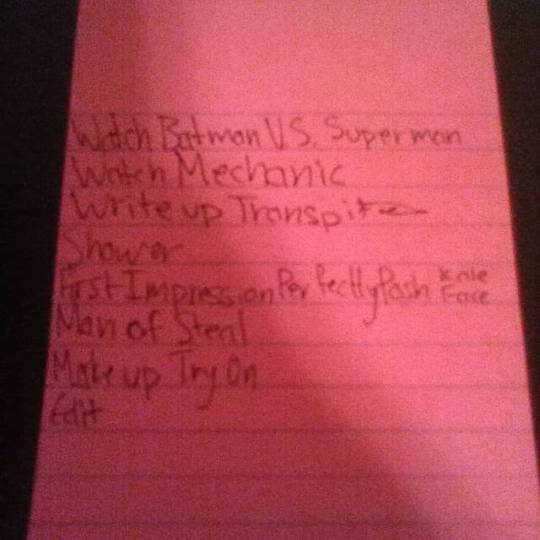 Watch Batman VS. Superman
Watch Mechanic
Write up Transpit
Shower
First Impression Perfectly Posh
Face
Man of Steal
Make up Try On
Edit